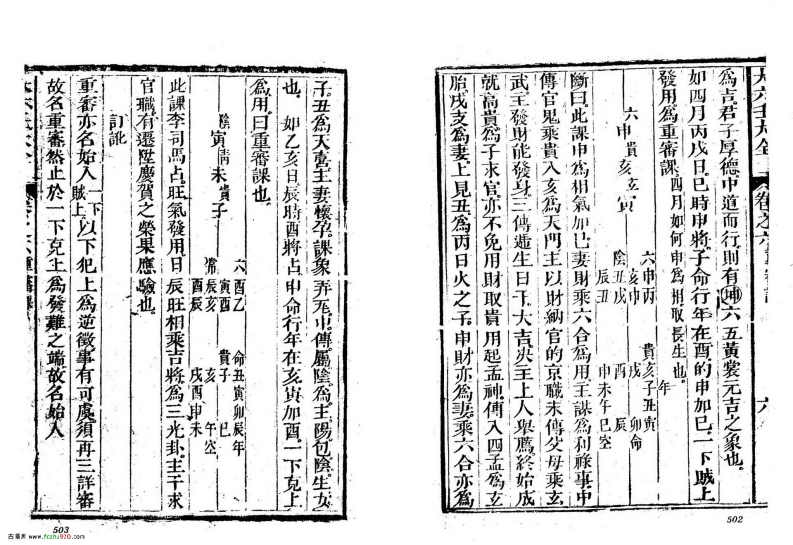 爲吉君子厚德中道而行則有坤六五黃裳元吉之象也
如四月丙戌日巳時申將子命行年在酉的申加巳一下賊上
發用爲重審課四月如何申爲相取長生也
六申貴亥玄寅
六申丙 貴亥子丑寅年
亥申 戌 卯命
陰丑戌 酉 辰
辰丑 申未午巳空
斷曰此課申爲相氣加巳妻財乘六合爲用主謀爲利祿事中
傳官鬼乘貴入亥爲天門主以財納官的京職末傳父母乘玄
武主發財能發身三傳遞生日干大吉炎主上人舉薦終始成
就高貴爲子求官亦不免用財取貴用起孟神傳入四孟爲玄
胎戌支爲妻上見丑爲丙日火之子申財亦爲妻乘六合亦爲
502
子丑爲天喜主妻懷孕課象 中傳屬陰爲主陽包陰生女
也 如乙亥日辰時酉將占申命行年在亥寅加酉一下克上
爲用曰重審課也
陰寅青未貴子
六酉乙 命丑寅卯辰年
寅酉 貴子 巳
常辰亥 亥 午空
酉辰 戌酉申未
此課李司馬占旺氣發用日辰旺相乘吉將爲三光卦主干求
官職有遷陞慶賀之榮果應驗也
訂訛
重審亦名始入一下賊上以下犯上爲逆徵事有可虞須再三詳審
故名重審然止於一下克上爲發難之端故名始入
503
古籍库 www.fczhu920.com